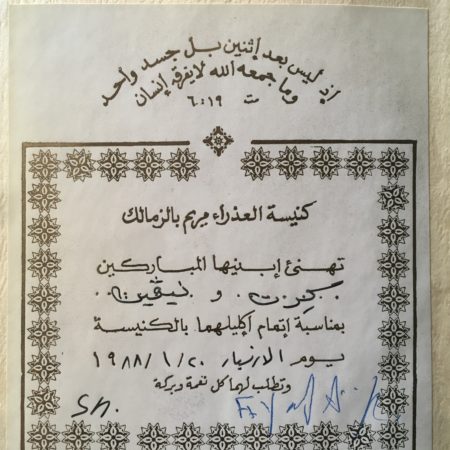 إذ ليس بعد إثنين بل جسد واحد
وما جمعه الله لا يفرقه إنسان
ت ٦:١٩
كنيسة العذراء مريم بالزمالك
تهنئ إبنيها المباركين
و
بمناسبة إتمام إكليلهما بالكنيسة
يوم الاربعاء ١٩٨٨/١/٢٠
وتطلب لهما كل نعمة وبركة